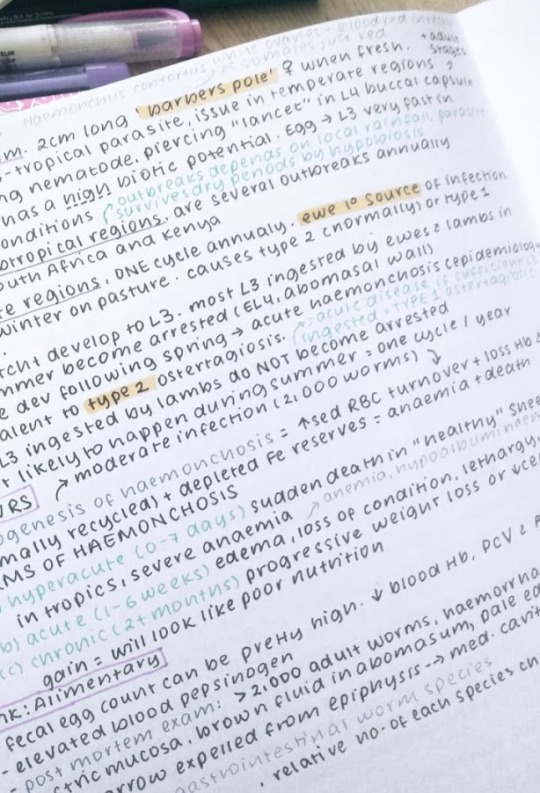 Haemonchus contortus white ovaries + blood red intestin
+ adult
stages
m. 2cm long 'barbers pole' ♀ when fresh.
-tropical parasite, issue in temperate regions
ng nematode, piercing "lancet" in L4 buccal capsule
has a high biotic potential. Egg → L3 very fast in
onditions outbreaks depends on local rainfall, parasite
survives dry periods by hypobiosis
otropical regions, are several outbreaks annually
outh Africa and Kenya
te regions, ONE cycle annualy. ewe 1° source of infection
winter on pasture. causes type 2 (normally) or type 1
tcht develop to L3. most L3 ingested by ewes & lambs in
mmer become arrested (EL4, abomasal wall)
e dev following spring → acute haemonchosis (epidemiology
alent to type 2 ostertagiosis. → acute disease if sufficient L3
ingested = TYPE 1 ostertagiosis
L3 ingested by lambs do NOT become arrested
t likely to happen during summer = one cycle / year
→ moderate infection (21,000 worms)
RS
ogenesis of haemonchosis = ↑sed RBC turnover + loss Hb &
mally recycled) + depleted Fe reserves = anaemia + death
MS OF HAEMONCHOSIS
hyperacute (0-7 days) sudden death in "healthy" shee
in tropics, severe anaemia anaemia, hypoalbuminaem
b) acute (1-6 weeks) edema, loss of condition, lethargy,
(c) chronic (2+ months) progressive weight loss or ↓ced
gain = will look like poor nutrition
nk: Alimentary
fecal egg count can be pretty high. ↓ blood Hb, PCV &
- elevated blood pepsinogen
- post mortem exam: >2,000 adult worms, haemorrha
tric mucosa, brown fluid in abomasum, pale ed
arrow expelled from epiphysis --> med. cavit
gastrointestinal worm species
, relative no. of each species